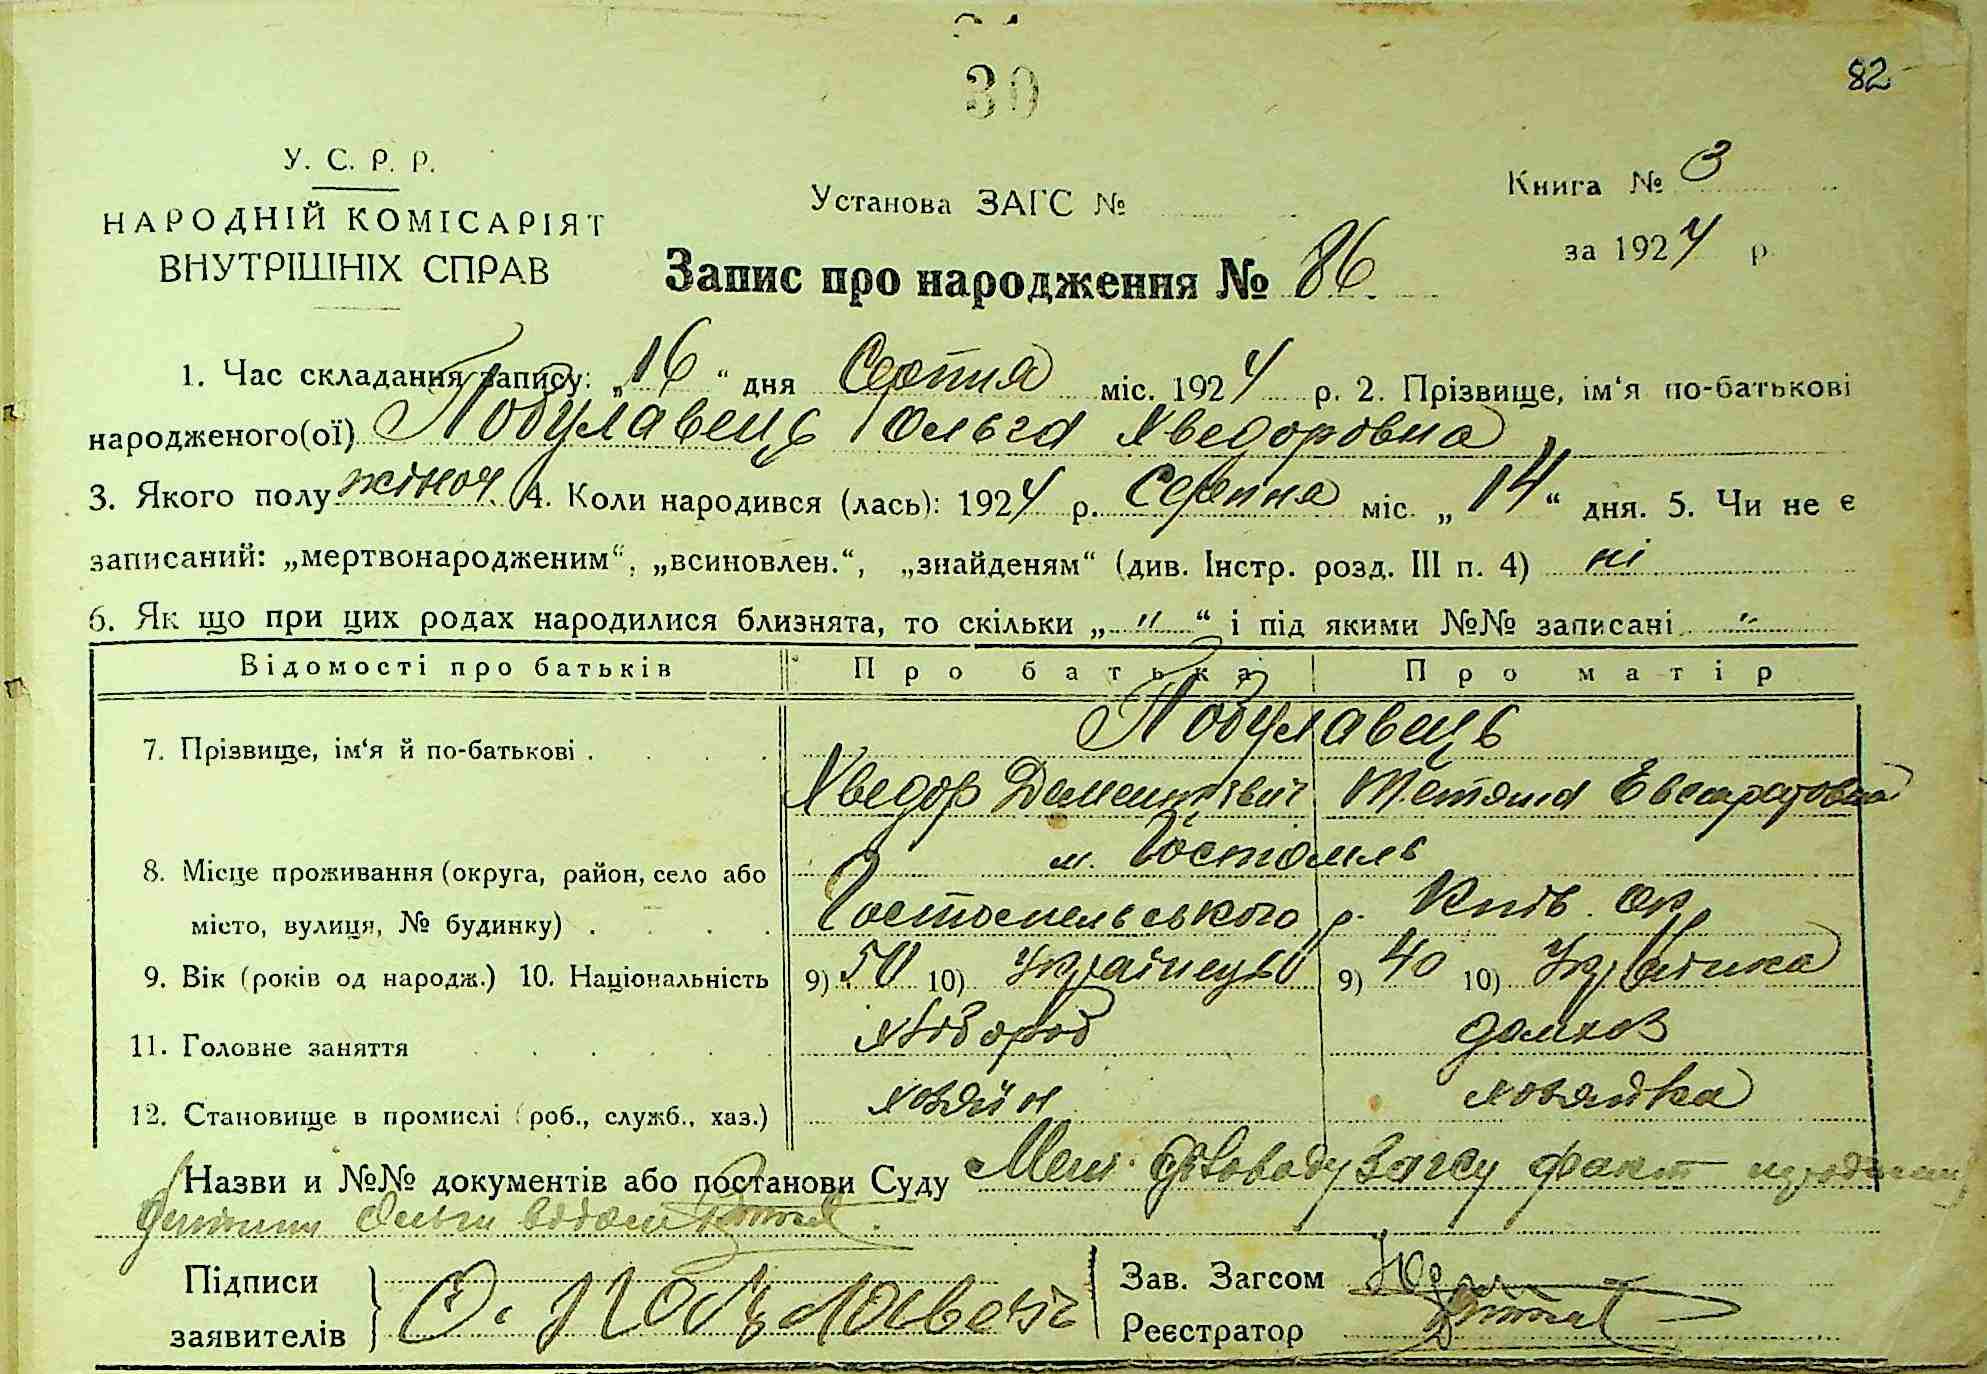 30
82
У. С. Р. Р.
НАРОДНІЙ КОМІСАРІЯТ
ВНУТРІШНІХ СПРАВ
Установа ЗАГС №
Книга № 3
за 1924 р.
Запис про народження № 86
1. Час складання запису: „16“ дня Серпня міс. 1924 р. 2. Прізвище, ім‘я по-батькові
народженого(ої) Побулавець Ольга Хведоровна
3. Якого полу жіноч. 4. Коли народився (лась): 1924 р. Серпня міс. „14“ дня. 5. Чи не є
записаний: „мертвонародженим“, „всиновлен.“, „знайденям“ (див. Інстр. розд. III п. 4) ні
6. Як що при цих родах народилися близнята, то скільки „ " “ і під якими №№ записані "
Відомості про батьків Про батька Про матір
7. Прізвище, ім‘я й по-батькові . Побулавець
Хведор Дементієвич Тетяна Евстратовна
8. Місце проживання (округа, район, село або м. Гостомль
місто, вулиця, № будинку) . Гостомельського р. Київ. ок
9. Вік (років од народж.) 10. Національність 9) 50 10) Українець 9) 40 10) Українка
11. Головне заняття хлібороб домхоз
12. Становище в промислі (роб., служб., хаз.) хозяїн хозяйка
Назви и №№ документів або постанови Суду Загсу факт
Ольги
Підписи
заявителів
Побулавець
Зав. Загсом
Реєстратор